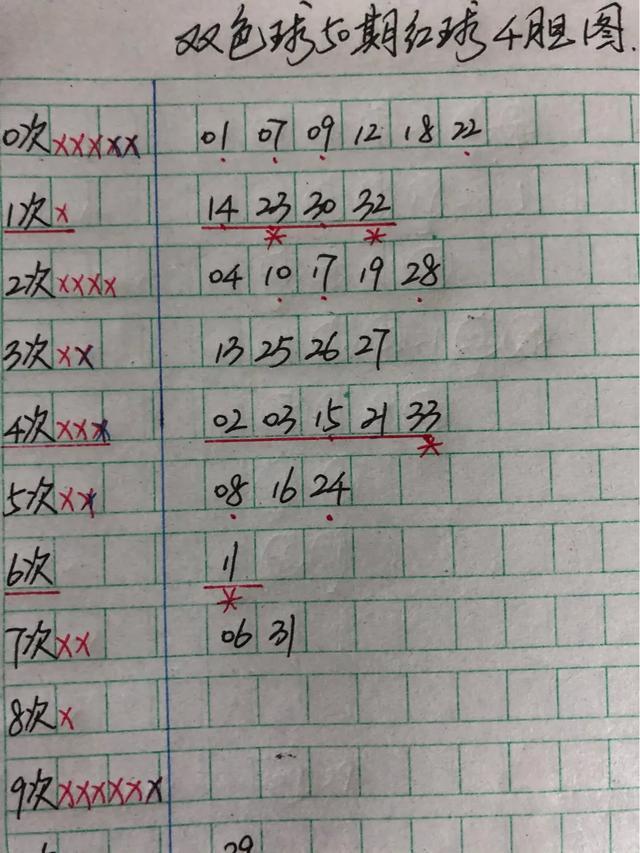 双色球50期红球4胆图.
0次xxxxx 01 07 09 12 18 22
1次x 14 23 30 32
* *
2次xxxx 04 10 17 19 28
3次xx 13 25 26 27
4次xxx 02 03 15 21 33
*
5次xx 08 16 24
6次 11
*
7次xx 06 31
8次x
9次xxxxxx
29